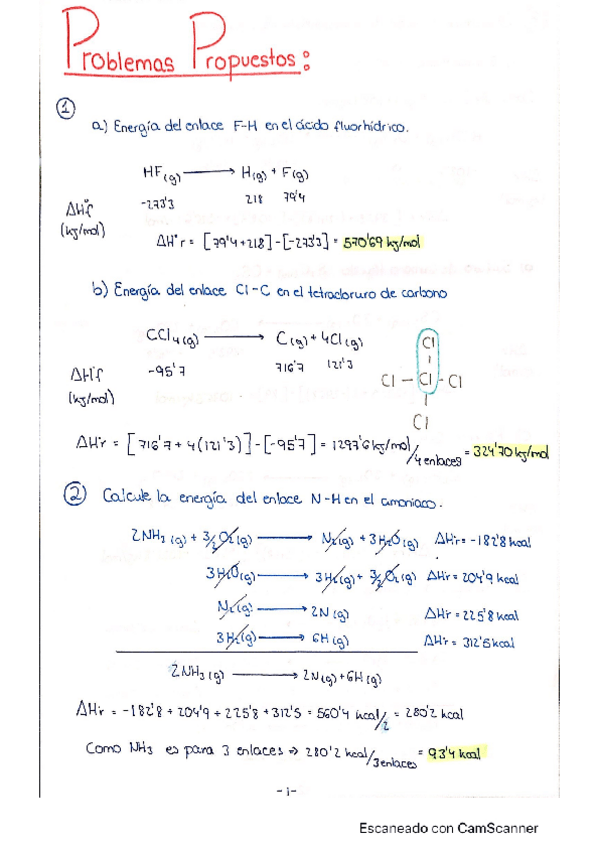 Problemas Propuestos:
①
a) Energía del enlace F-H en el ácido fluorhídrico.
HF(g) → H(g) + F(g)
ΔH°f (kj/mol) -273'3 218 79'4
ΔH°r = [79'4+218]-[-273'3] = 570'69 kj/mol
b) Energía del enlace Cl-C en el tetracloruro de carbono
CCl4(g) → C(g) + 4Cl(g)
ΔH°f (kj/mol) -95'7 716'7 121'3
Cl
Cl - Cl - Cl
Cl
ΔH°r = [716'7 + 4(121'3)]-[-95'7] = 1297'6 kj/mol/4 enlaces = 324'70 kj/mol
② Calcule la energía del enlace N-H en el amoniaco.
2NH3 (g) + 3/2O2(g) → N2(g) + 3H2O(g) ΔH°r = -182'8 kcal
3H2O(g) → 3H2(g) + 3/2O2(g) ΔH°r = 204'9 kcal
N2(g) → 2N(g) ΔH°r = 225'8 kcal
3H2(g) → 6H(g) ΔH°r = 312'5 kcal
2NH3(g) → 2N(g) + 6H(g)
ΔH°r = -182'8 + 204'9 + 225'8 + 312'5 = 560'4 kcal/2 = 280'2 kcal
Como NH3 es para 3 enlaces ⇒ 280'2 kcal/3enlaces = 93'4 kcal
-1-
Escaneado con CamScanner